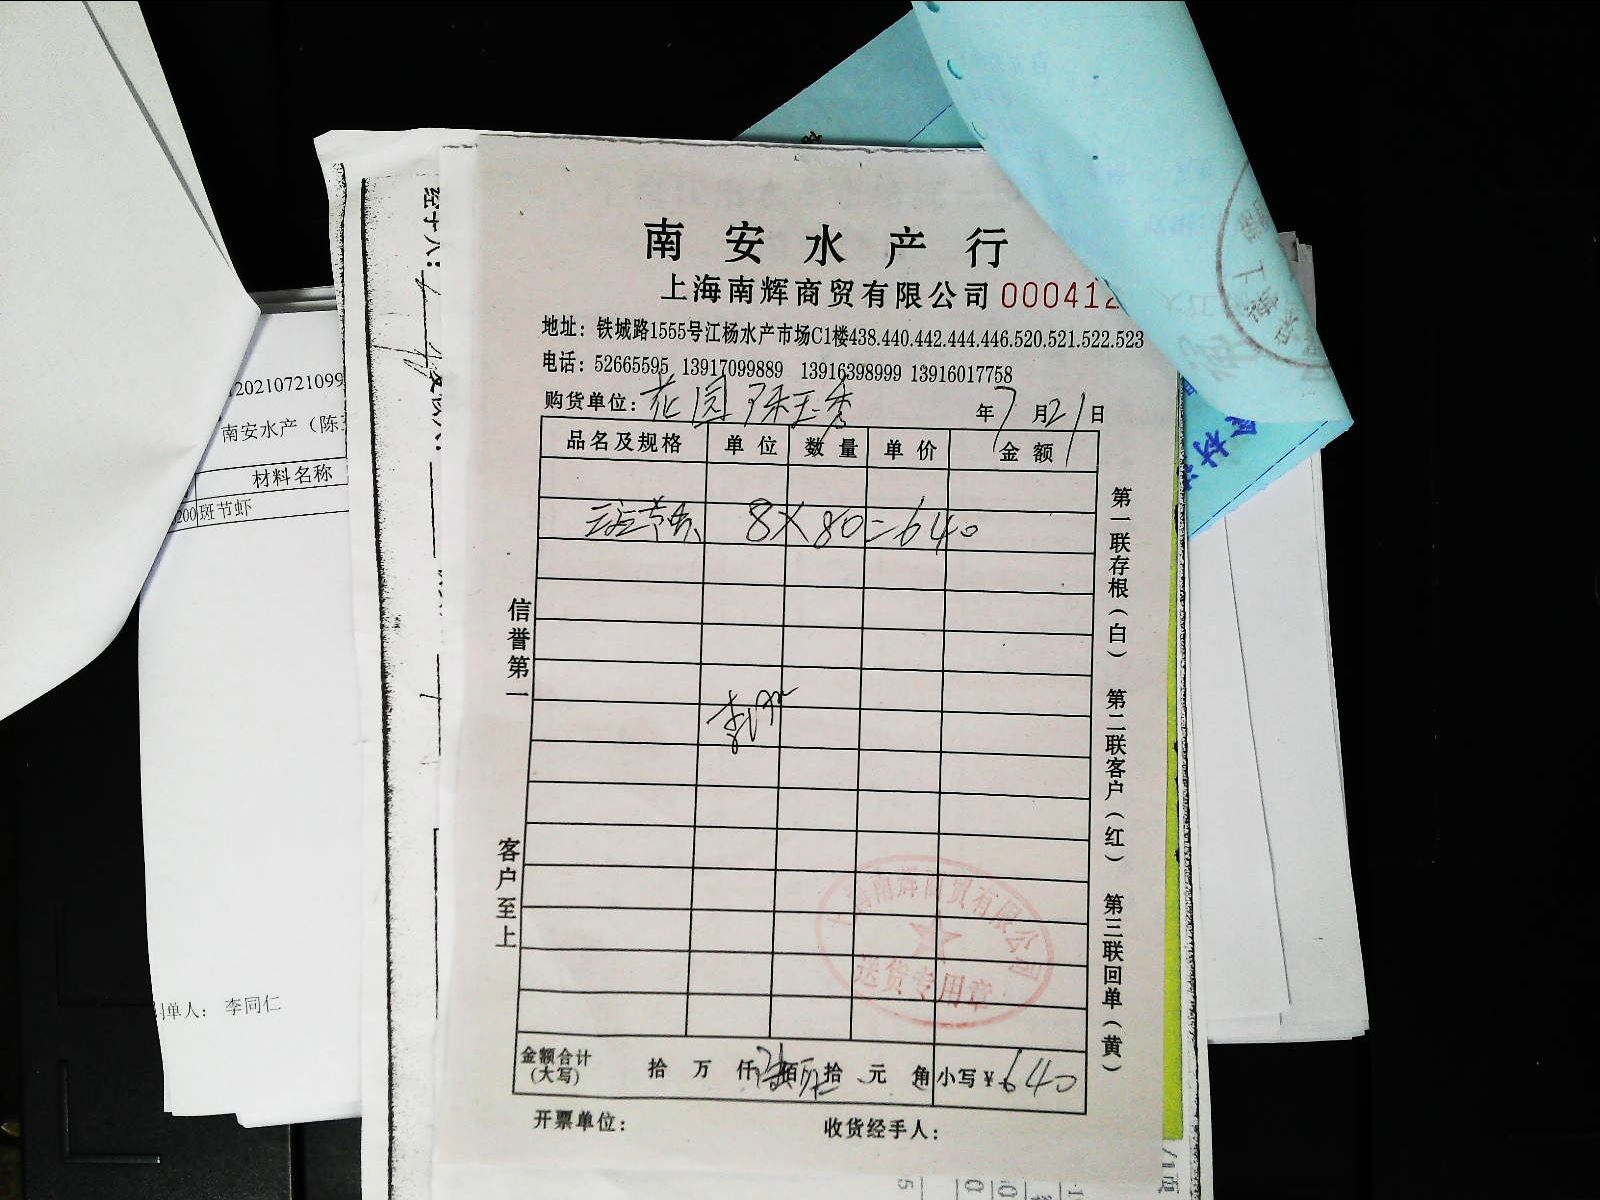 南安水产行
上海南辉商贸有限公司 000412
地址：铁城路1555号江杨水产市场C1楼438.440.442.444.446.520.521.522.523
电话：52665595 13917099889 13916398999 13916017758
购货单位：花园 陈玉秀 年7月21日
品名及规格 单位 数量 单价 金额
斑节虾 8×80=640
信誉第一
客户至上
第一联存根（白） 第二联客户（红） 第三联回单（黄）
上海南辉商贸有限公司
送货专用章
金额合计（大写） 拾 万 仟 佰 拾 元 角 小写¥640
开票单位： 收货经手人：
20210721099
南安水产（陈
材料名称
200 斑节虾
单人： 李同仁
经手人：